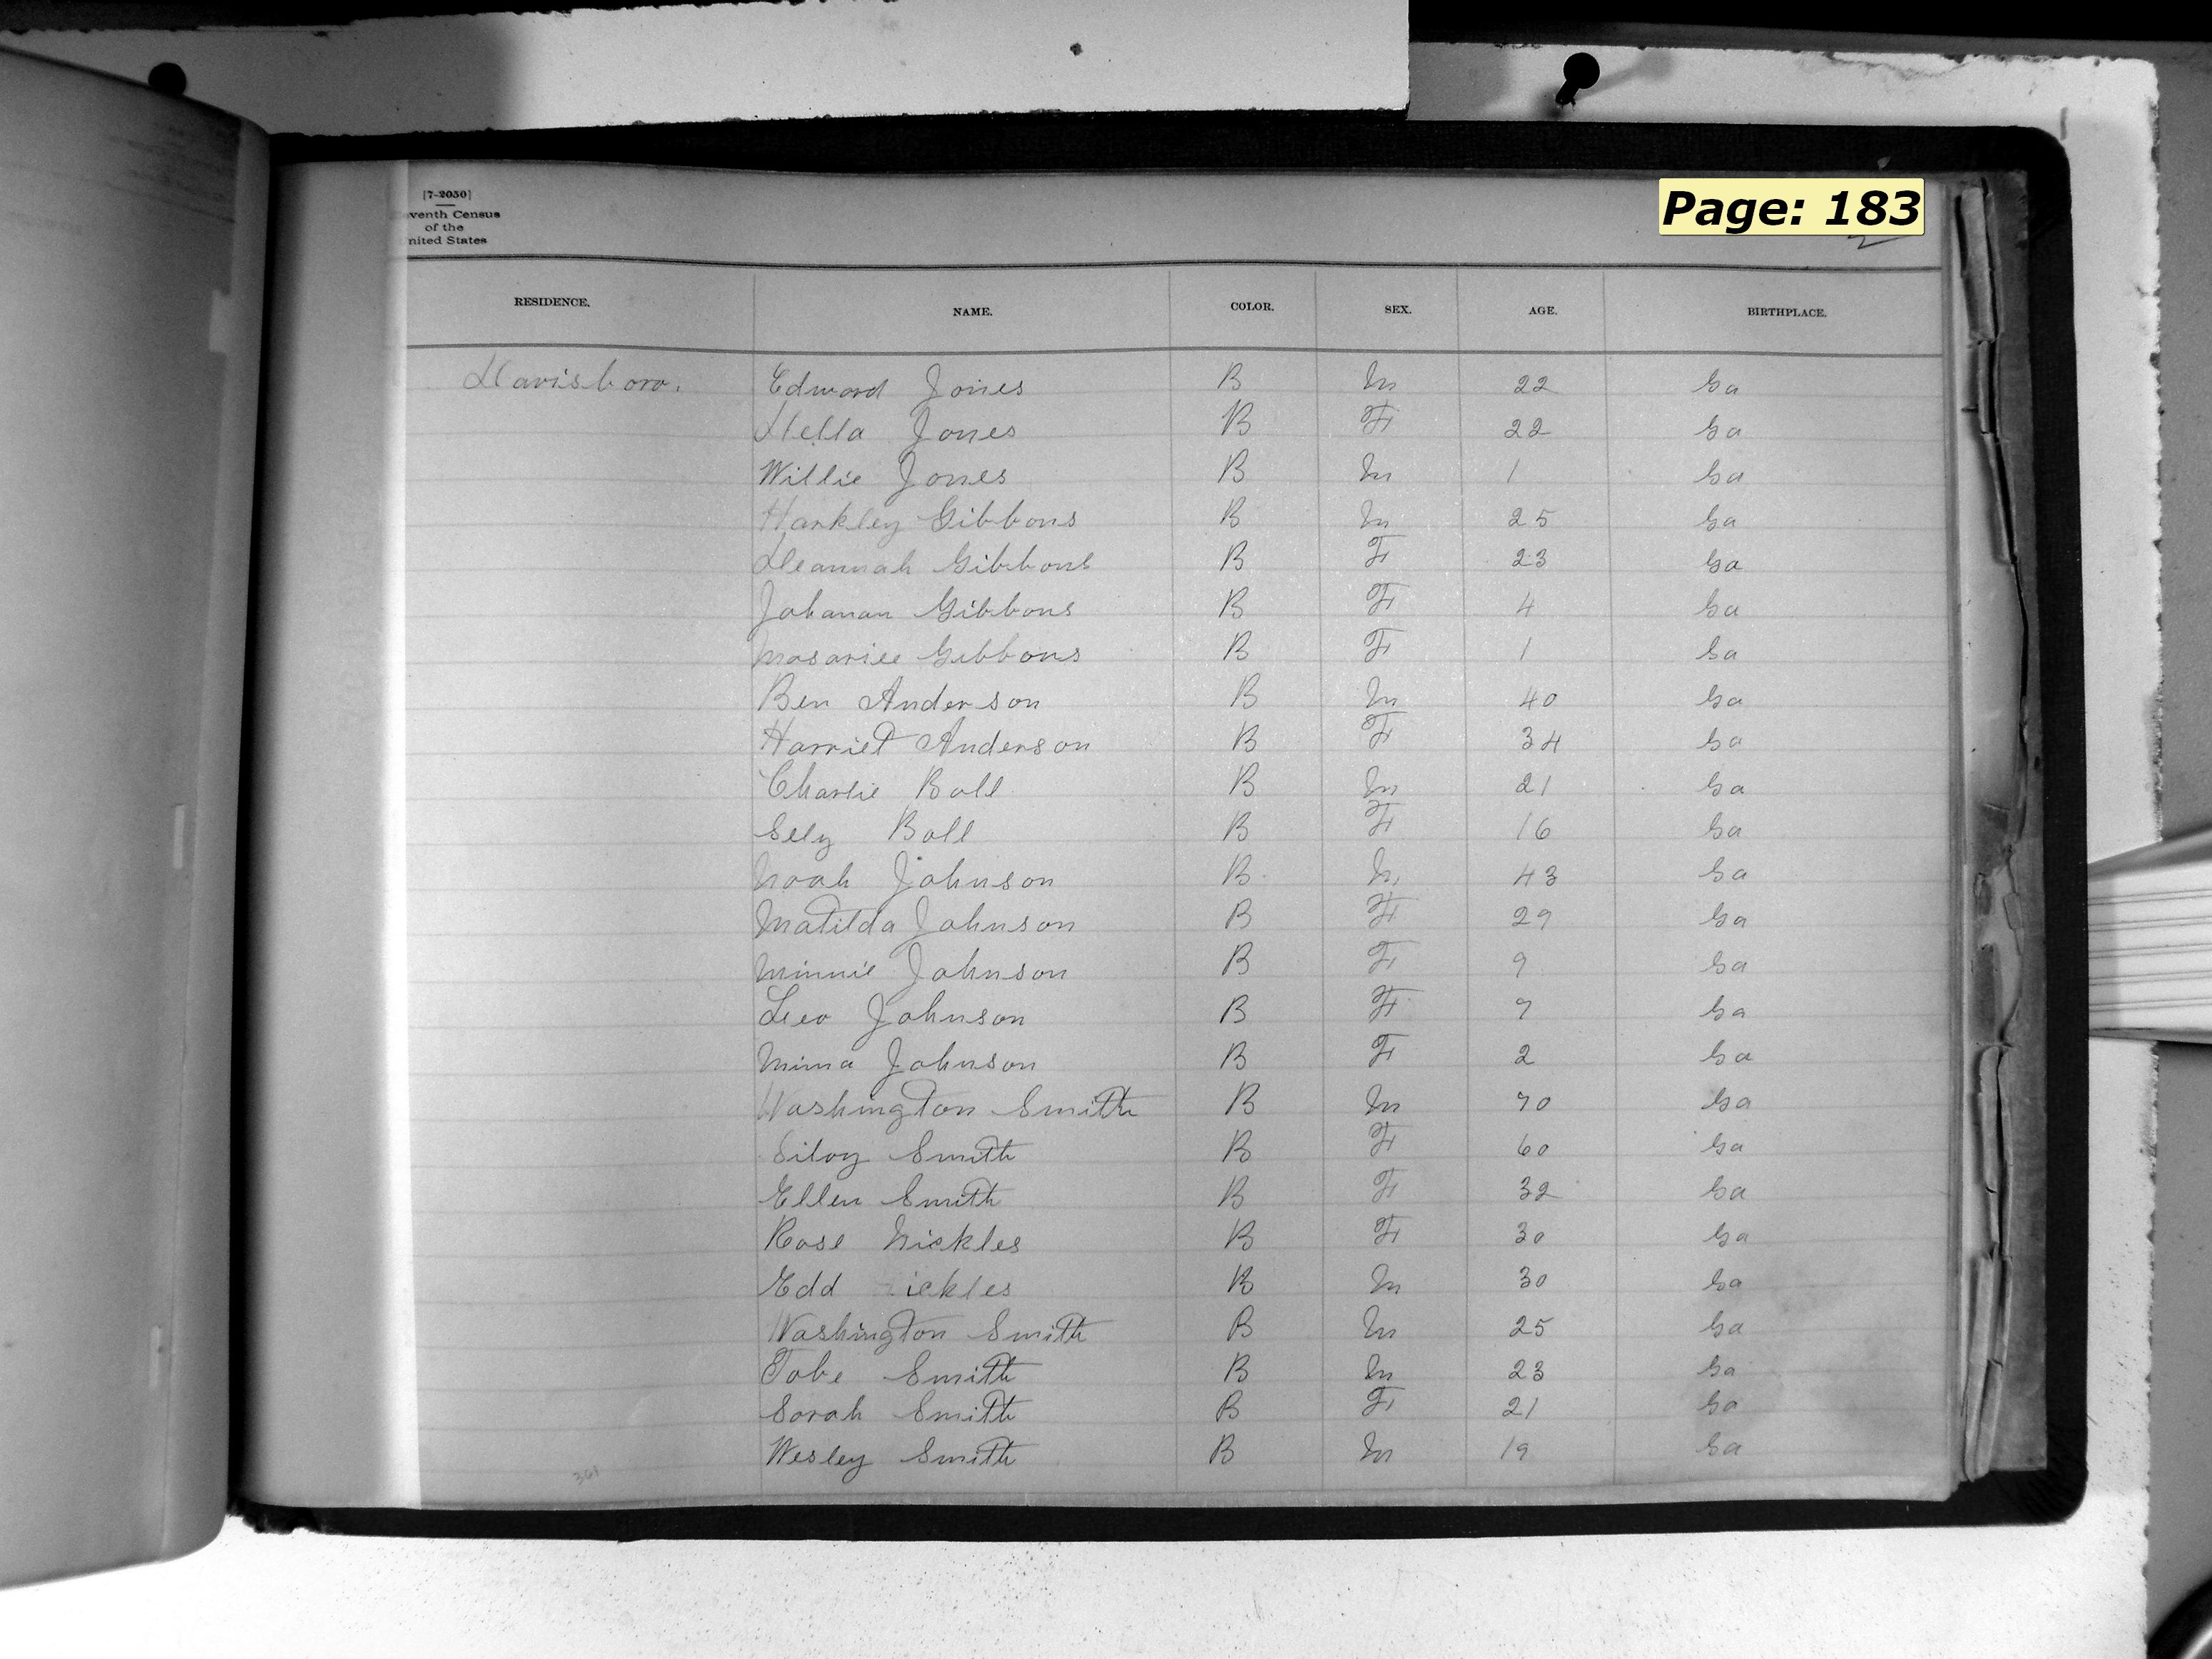 [7-2050]
venth Census
of the
nited States
Page: 183
RESIDENCE. NAME. COLOR. SEX. AGE. BIRTHPLACE.
Davisboro. Edward Jones B M 22 Ga
Della Jones B F 22 Ga
Willie Jones B M 1 Ga
Harkley Gibbons B M 25 Ga
Deannah Gibbons B F 23 Ga
Johanan Gibbons B F 4 Ga
Gibbons B F 1 Ga
Ben Anderson B M 40 Ga
Harriet Anderson B F 34 Ga
Charlie Ball B M 21 Ga
Sely Ball B F 16 Ga
Noah Johnson B M 43 Ga
Matilda Johnson B F 29 Ga
Minnie Johnson B F 9 Ga
Leeo Johnson B F 7 Ga
Mima Johnson B F 2 Ga
Washington Smith B M 70 Ga
Silvy Smith B F 60 Ga
Ellen Smith B F 32 Ga
Rose Nickles B F 30 Ga
Edd ickles B M 30 Ga
Washington Smith B M 25 Ga
Tobe Smith B M 23 Ga
Sarah Smith B F 21 Ga
Wesley Smith B M 19 Ga
361